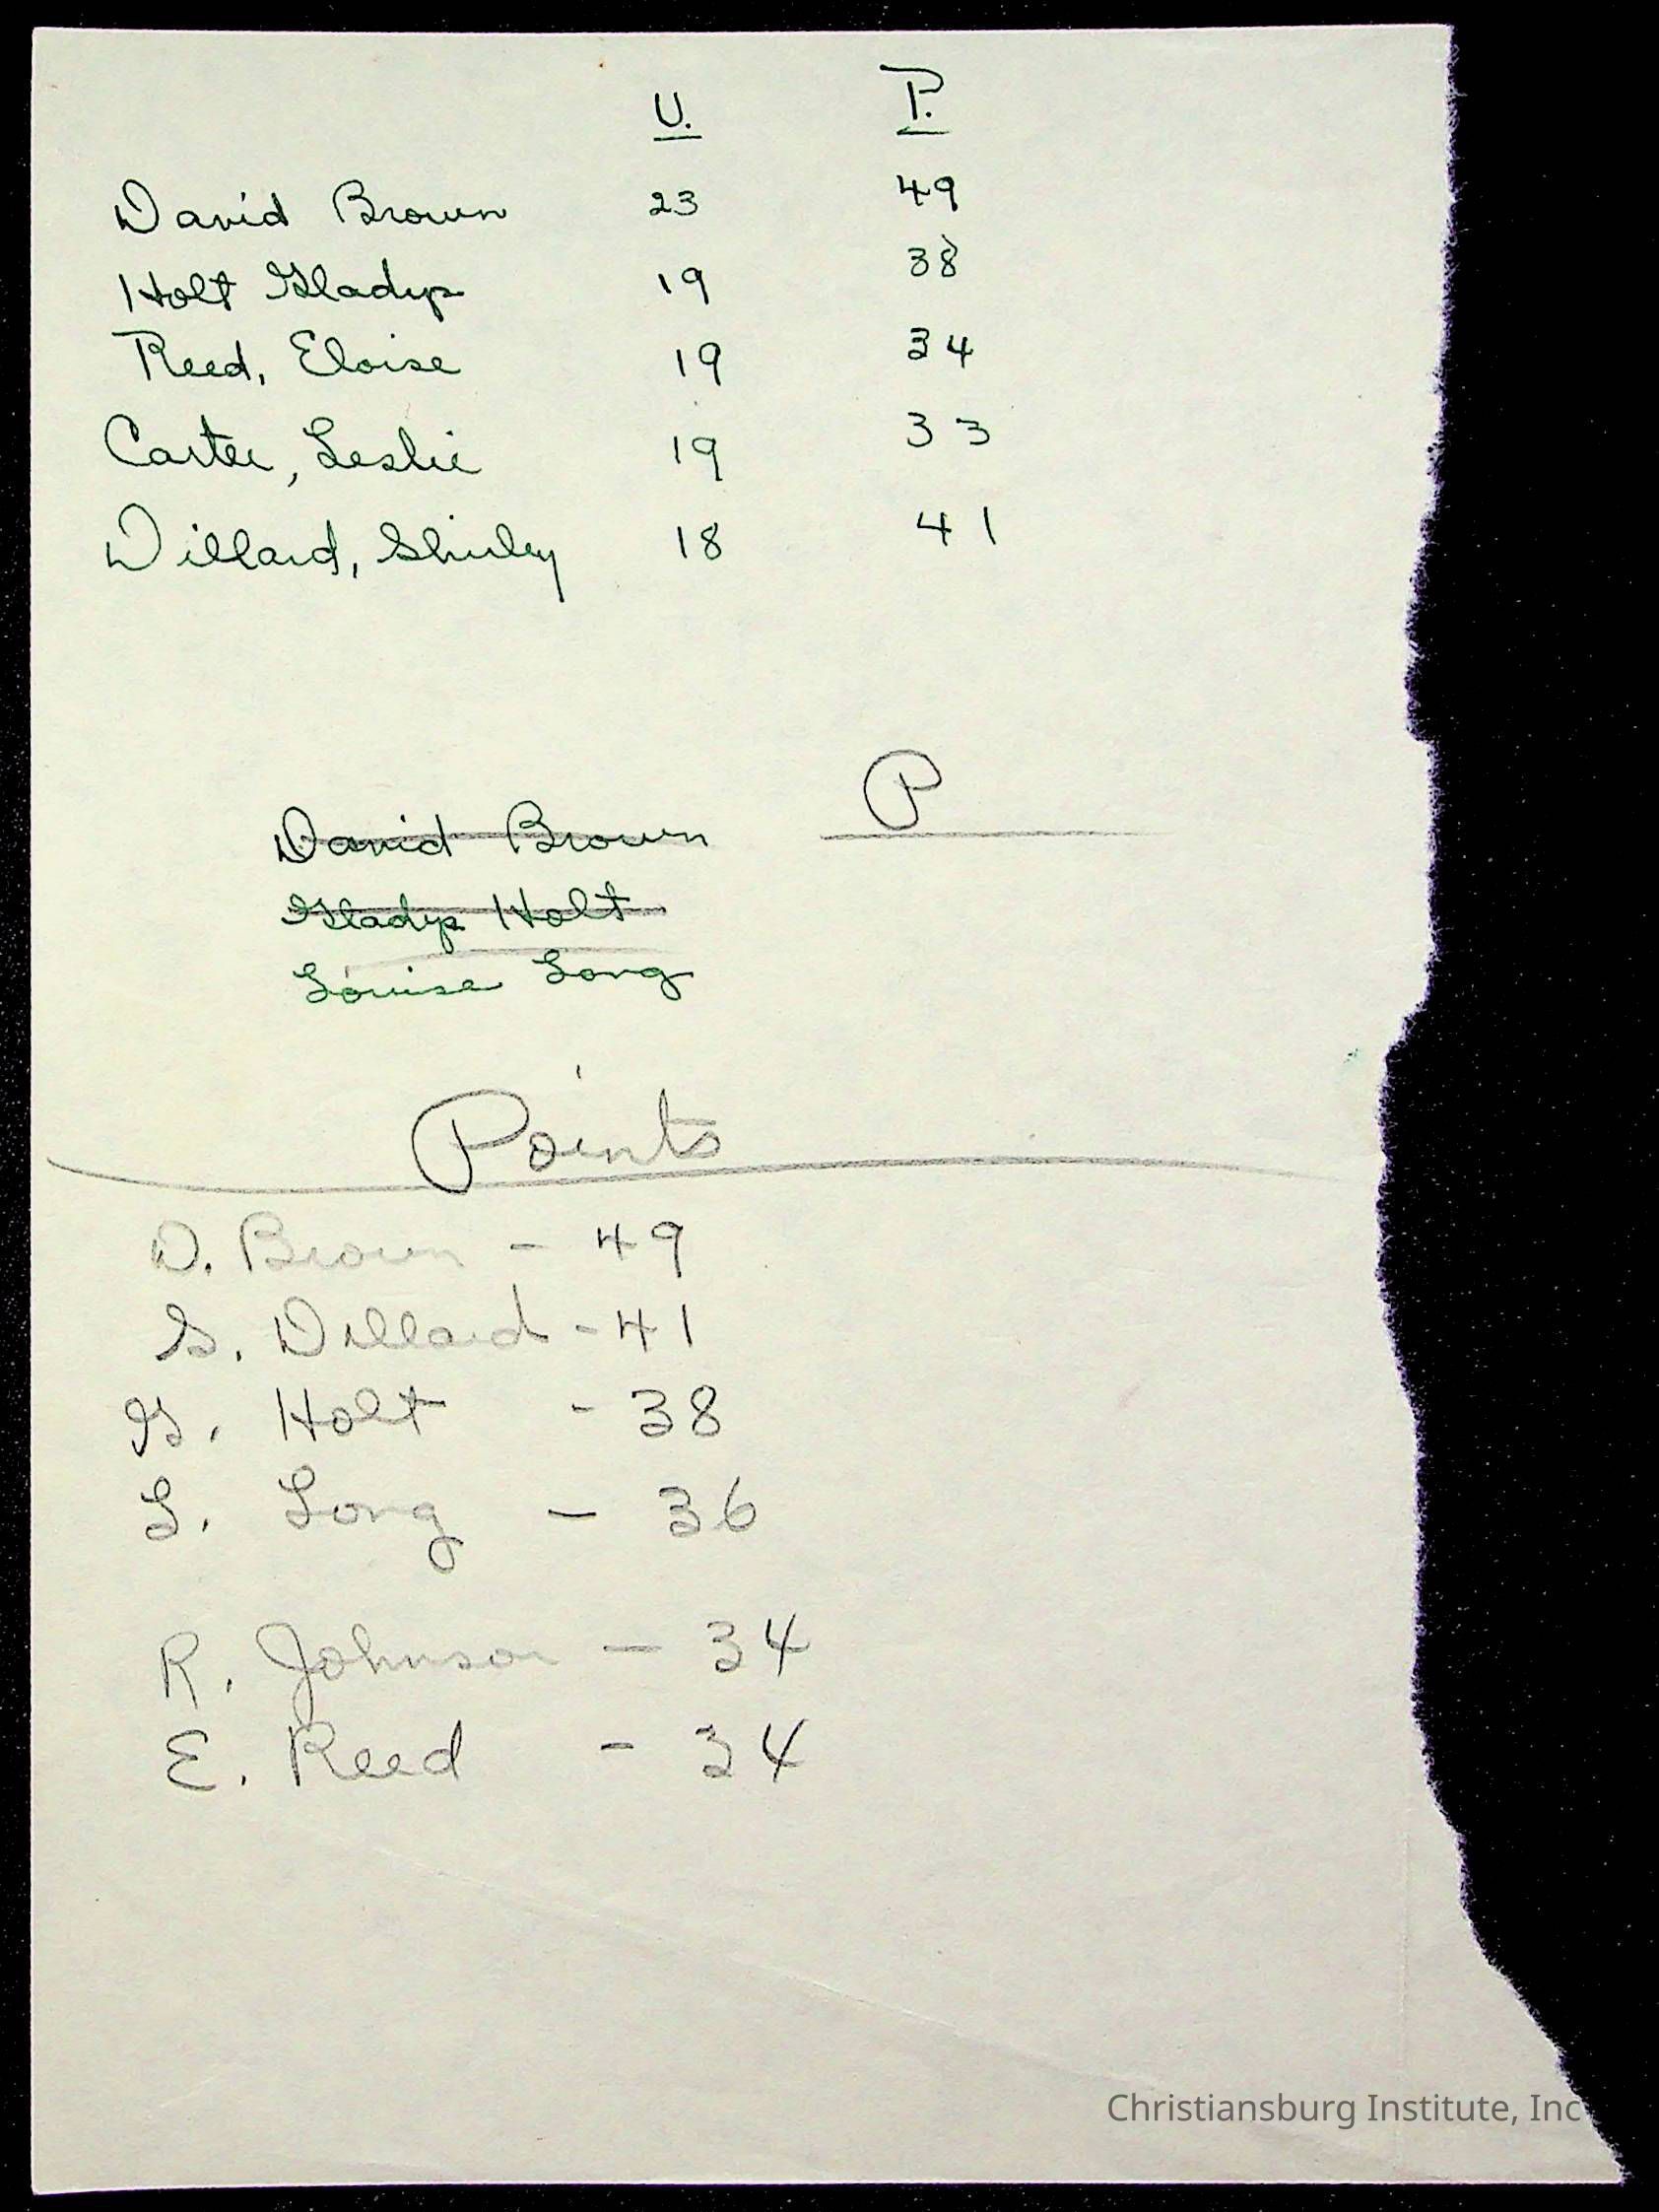 U. P.
David Brown 23 49
Holt Gladys 19 38
Reed, Eloise 19 34
Carter, Leslie 19 33
Dillard, Shirley 18 41
P
David Brown
Gladys Holt
Louise Long
Points
D. Brown - 49
S. Dillard - 41
G. Holt - 38
L. Long - 36
R. Johnson - 34
E. Reed - 34
Christiansburg Institute, Inc